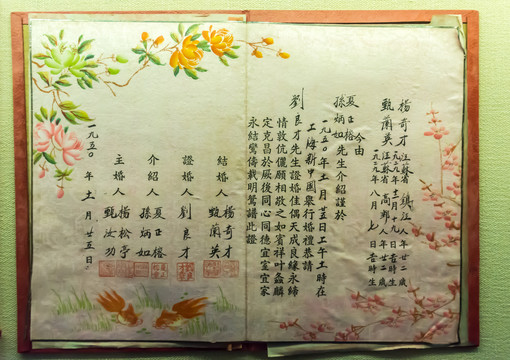 楊奇才 江蘇省鎮江人年廿二歲
一九二九年十一月九日吉時生
甄蘭英 江蘇省高郵人年廿二歲
一九二九年八月七日吉時生
今由
夏正榕
孫炳如 先生介紹謹於
一九五〇年十一月廿五日上午十時在
上海新中國舉行婚禮恭請
劉良才先生證婚佳偶天成良緣永締
情敦伉儷願相敬之如賓祥叶螽麟
定克昌於厥後同心同德宜室宜家
永結鸞儔裁明鴛譜此證
結婚人 楊奇才
甄蘭英
證婚人 劉良才
介紹人 夏正榕
孫炳如
主婚人 楊松亭
甄汝功
一九五〇年十一月廿五日